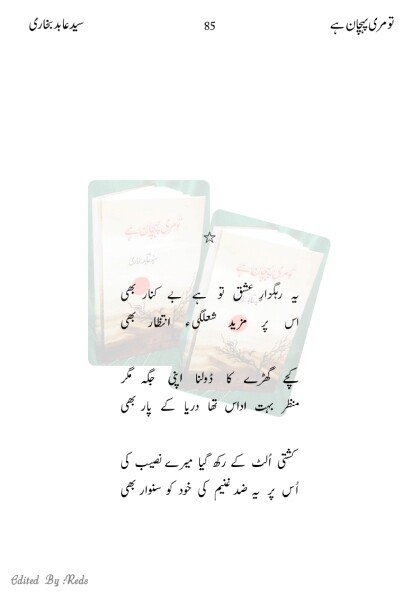 تو مری پہچان ہے 85 سید عابد بخاری
تو مری پہچان ہے
تو مری پہچان ہے
☆
یہ رہگزارِ عشق تو ہے بے کنار بھی
اس پر مزید شعلگیٔ انتظار بھی
کچے گھڑے کا ڈولنا اپنی جگہ مگر
منظر بہت اداس تھا دریا کے پار بھی
کشتی اُلٹ کے رکھ گیا میرے نصیب کی
اُس پر یہ ضد غنیم کی خود کو سنوار بھی
Edited By Reds